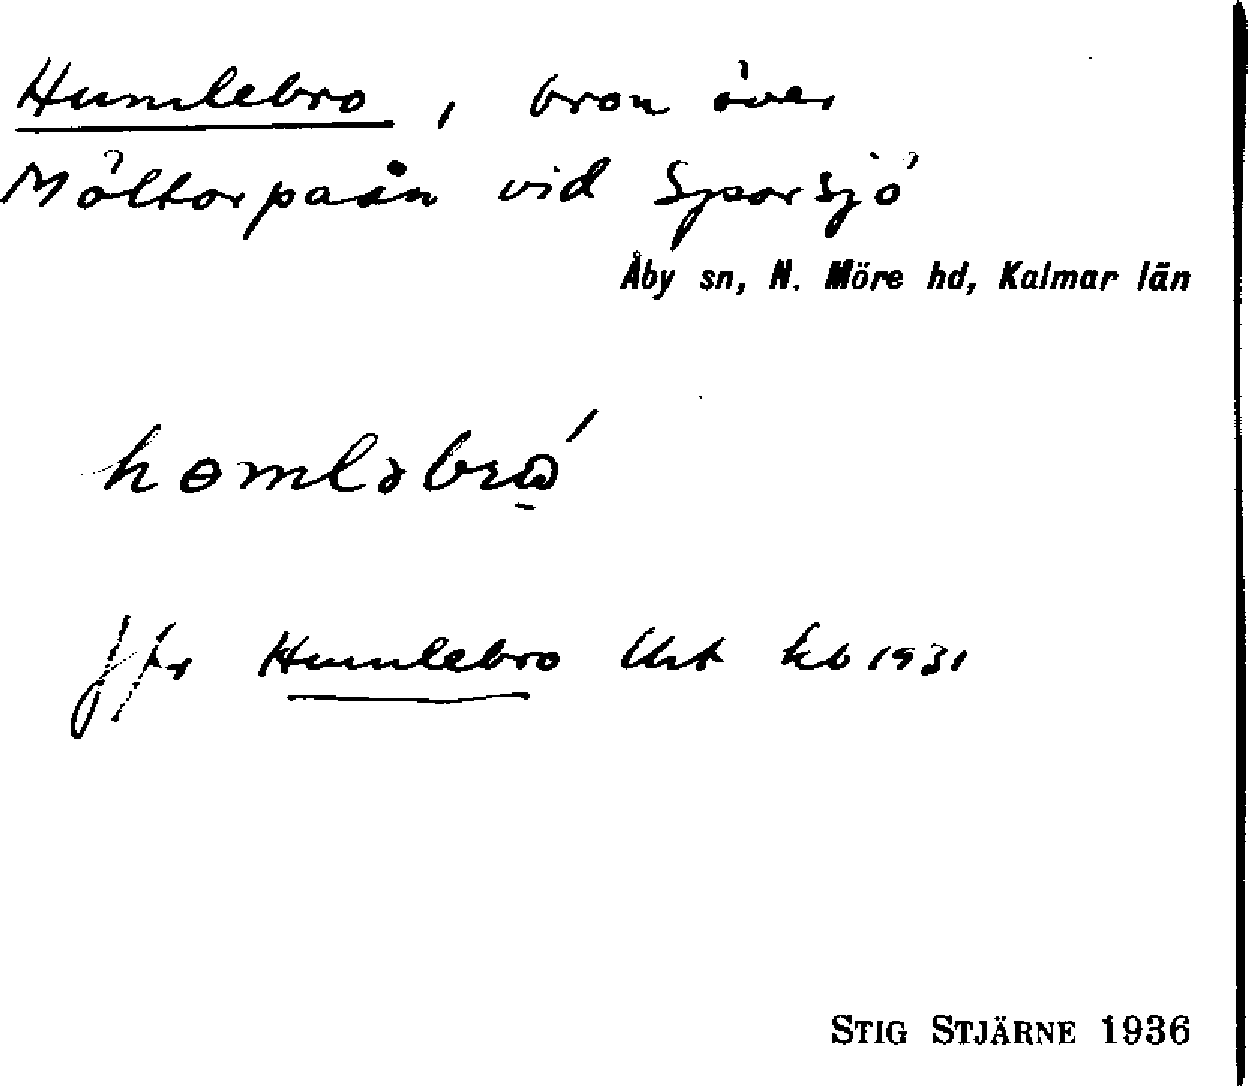 Humlebro, bron över
Möltorpaån vid Sporsjö
Åby sn, N. Möre hd, Kalmar län
hɵmləbrɷ̠́
Jfr Humlebro Urt kb 1931
STIG STJÄRNE 1936